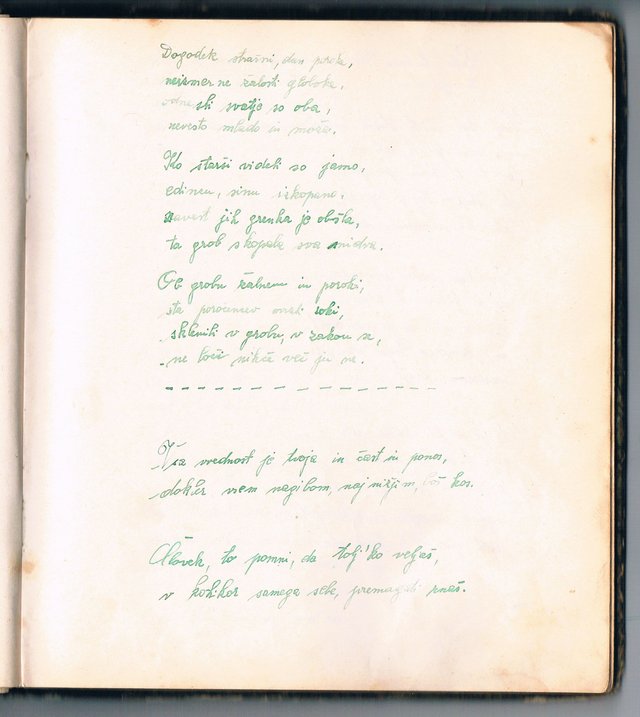 Dogodek strašni, dan poroke,
neizmerne žalosti globoke,
svatje so oba,
nevesto mlado in moža.
Ko starši videli so jamo,
edincu, sinu izkopano,
zavest jih grenka je obšla,
ta grob skopala sva midva.
Ob grobu žalnem in poroki,
sta poročencev roki,
sklenili v grobu, v zakon se,
ne loči nihče več ju ne.
Vsa vrednost je tvoja in čast in ponos,
dokler vsem nagibom, najnižjim, boš kos.
Človek, to pomni, da tolj'ko veljaš,
v kolikor samega sebe, premagati znaš.